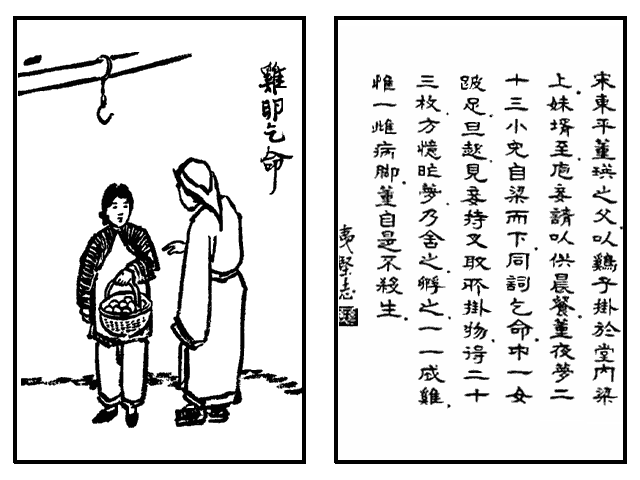 雞卵乞命
宋東平董瑛之父。以鷄子掛於堂內梁
上。妹壻至。庖妾請以供晨餐。董夜夢二
十三小兒自梁而下。同詞乞命。中一女
跛足。旦起。見妾持叉取所掛物。得二十
三枚。方憶昨夢。乃舍之。孵之。一一成雞。
惟一雌病脚。董自是不殺生。
夷堅志